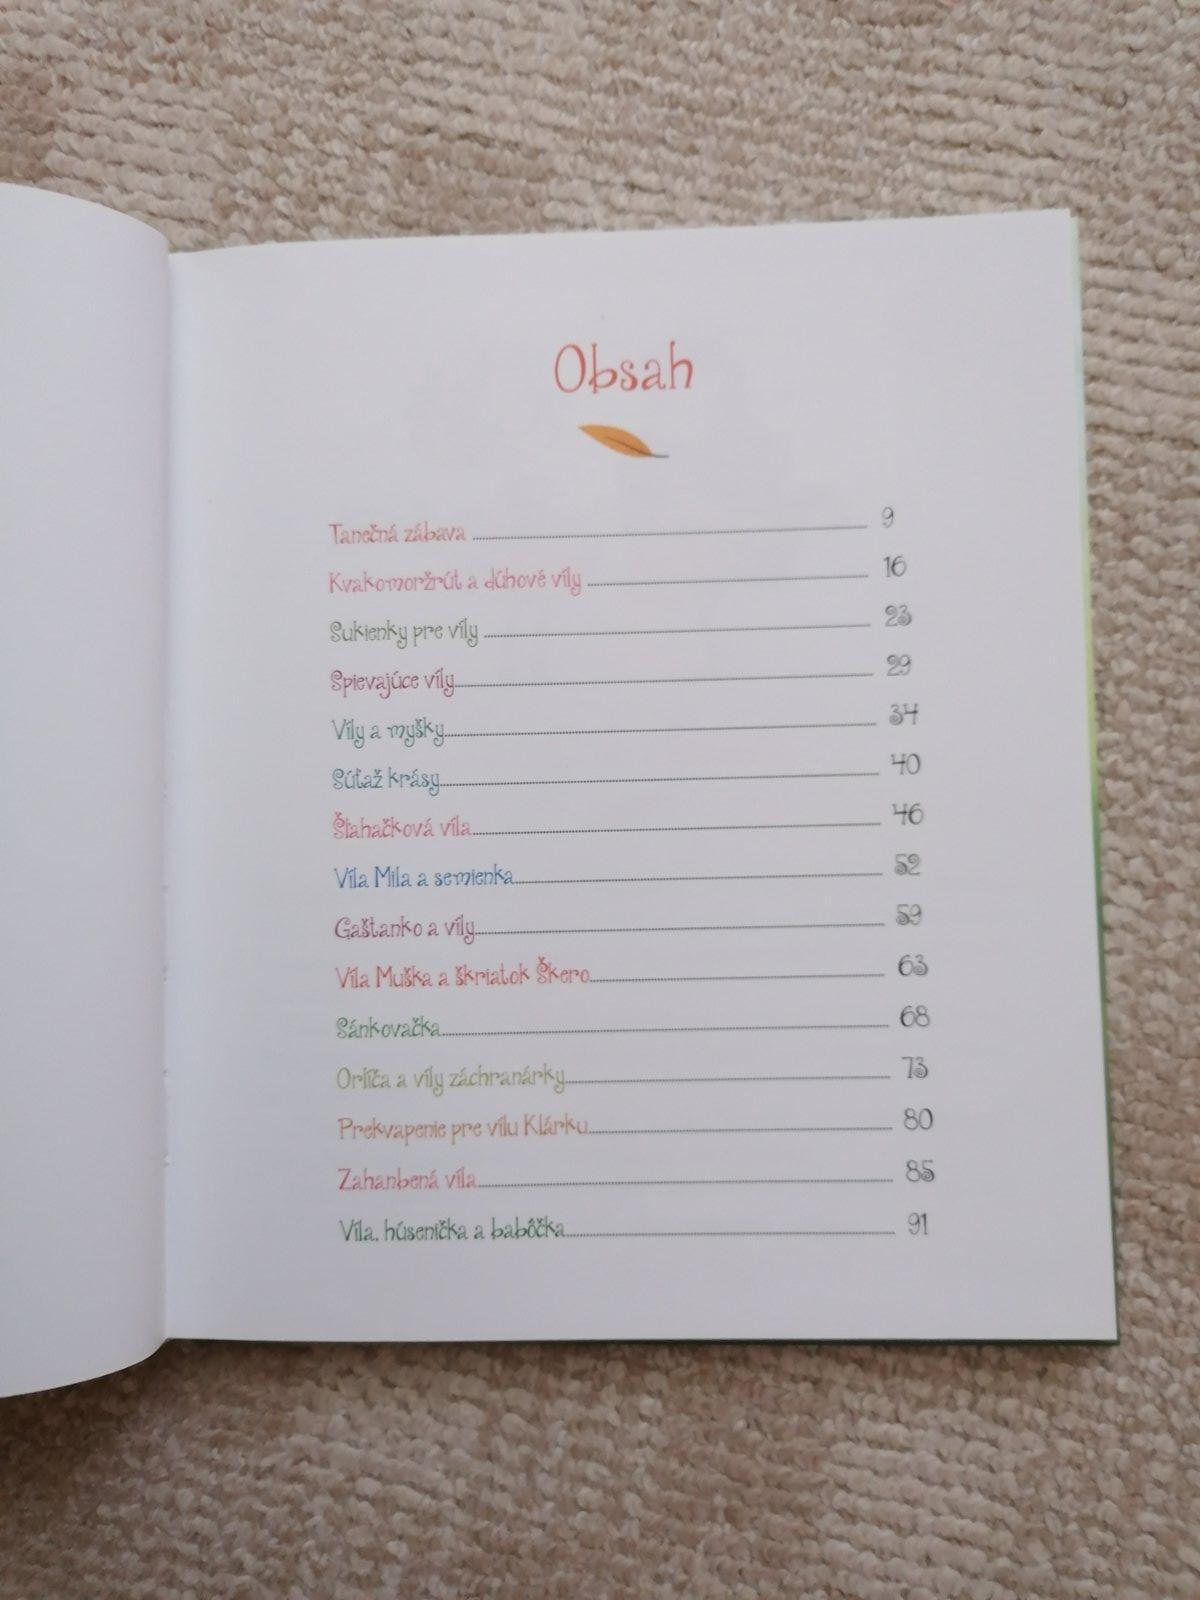 Obsah
Tanečná zábava 9
Kvakomoržrút a dúhové víly 16
Sukienky pre víly 23
Spievajúce víly 29
Víly a myšky 34
Súťaž krásy 40
Šľahačková víla 46
Víla Mila a semienka 52
Gaštanko a víly 59
Víla Muška a škriatok Škero 63
Sánkovačka 68
Orlíča a víly záchranárky 73
Prekvapenie pre vílu Klárku 80
Zahanbená víla 85
Víla, húsenička a babôčka 91